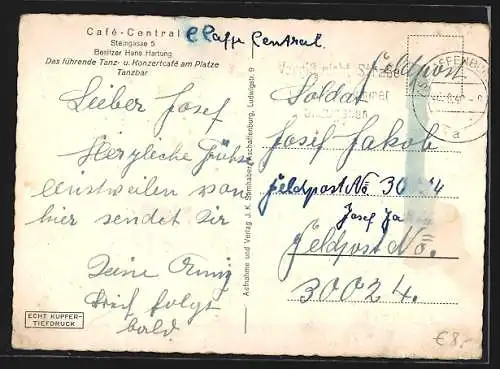 Café-Central
Steingasse 5
Besitzer Hans Hartung
Das führende Tanz- u. Konzertcafé am Platze
Tanzbar
Caffe Central
Lieber Josef
Herzliche Grüße
einstweilen von
hier sendet dir
Deine
Brief folgt
bald
ECHT KUPFER-
TIEFDRUCK
Aufnahme und Verlag J. K. Aschaffenburg, Ludwigstr. 9
Feldpost
Soldat
Josef Jakob
Feldpost No 30024
Josef
Feldpost No.
30024.
a
€8.-